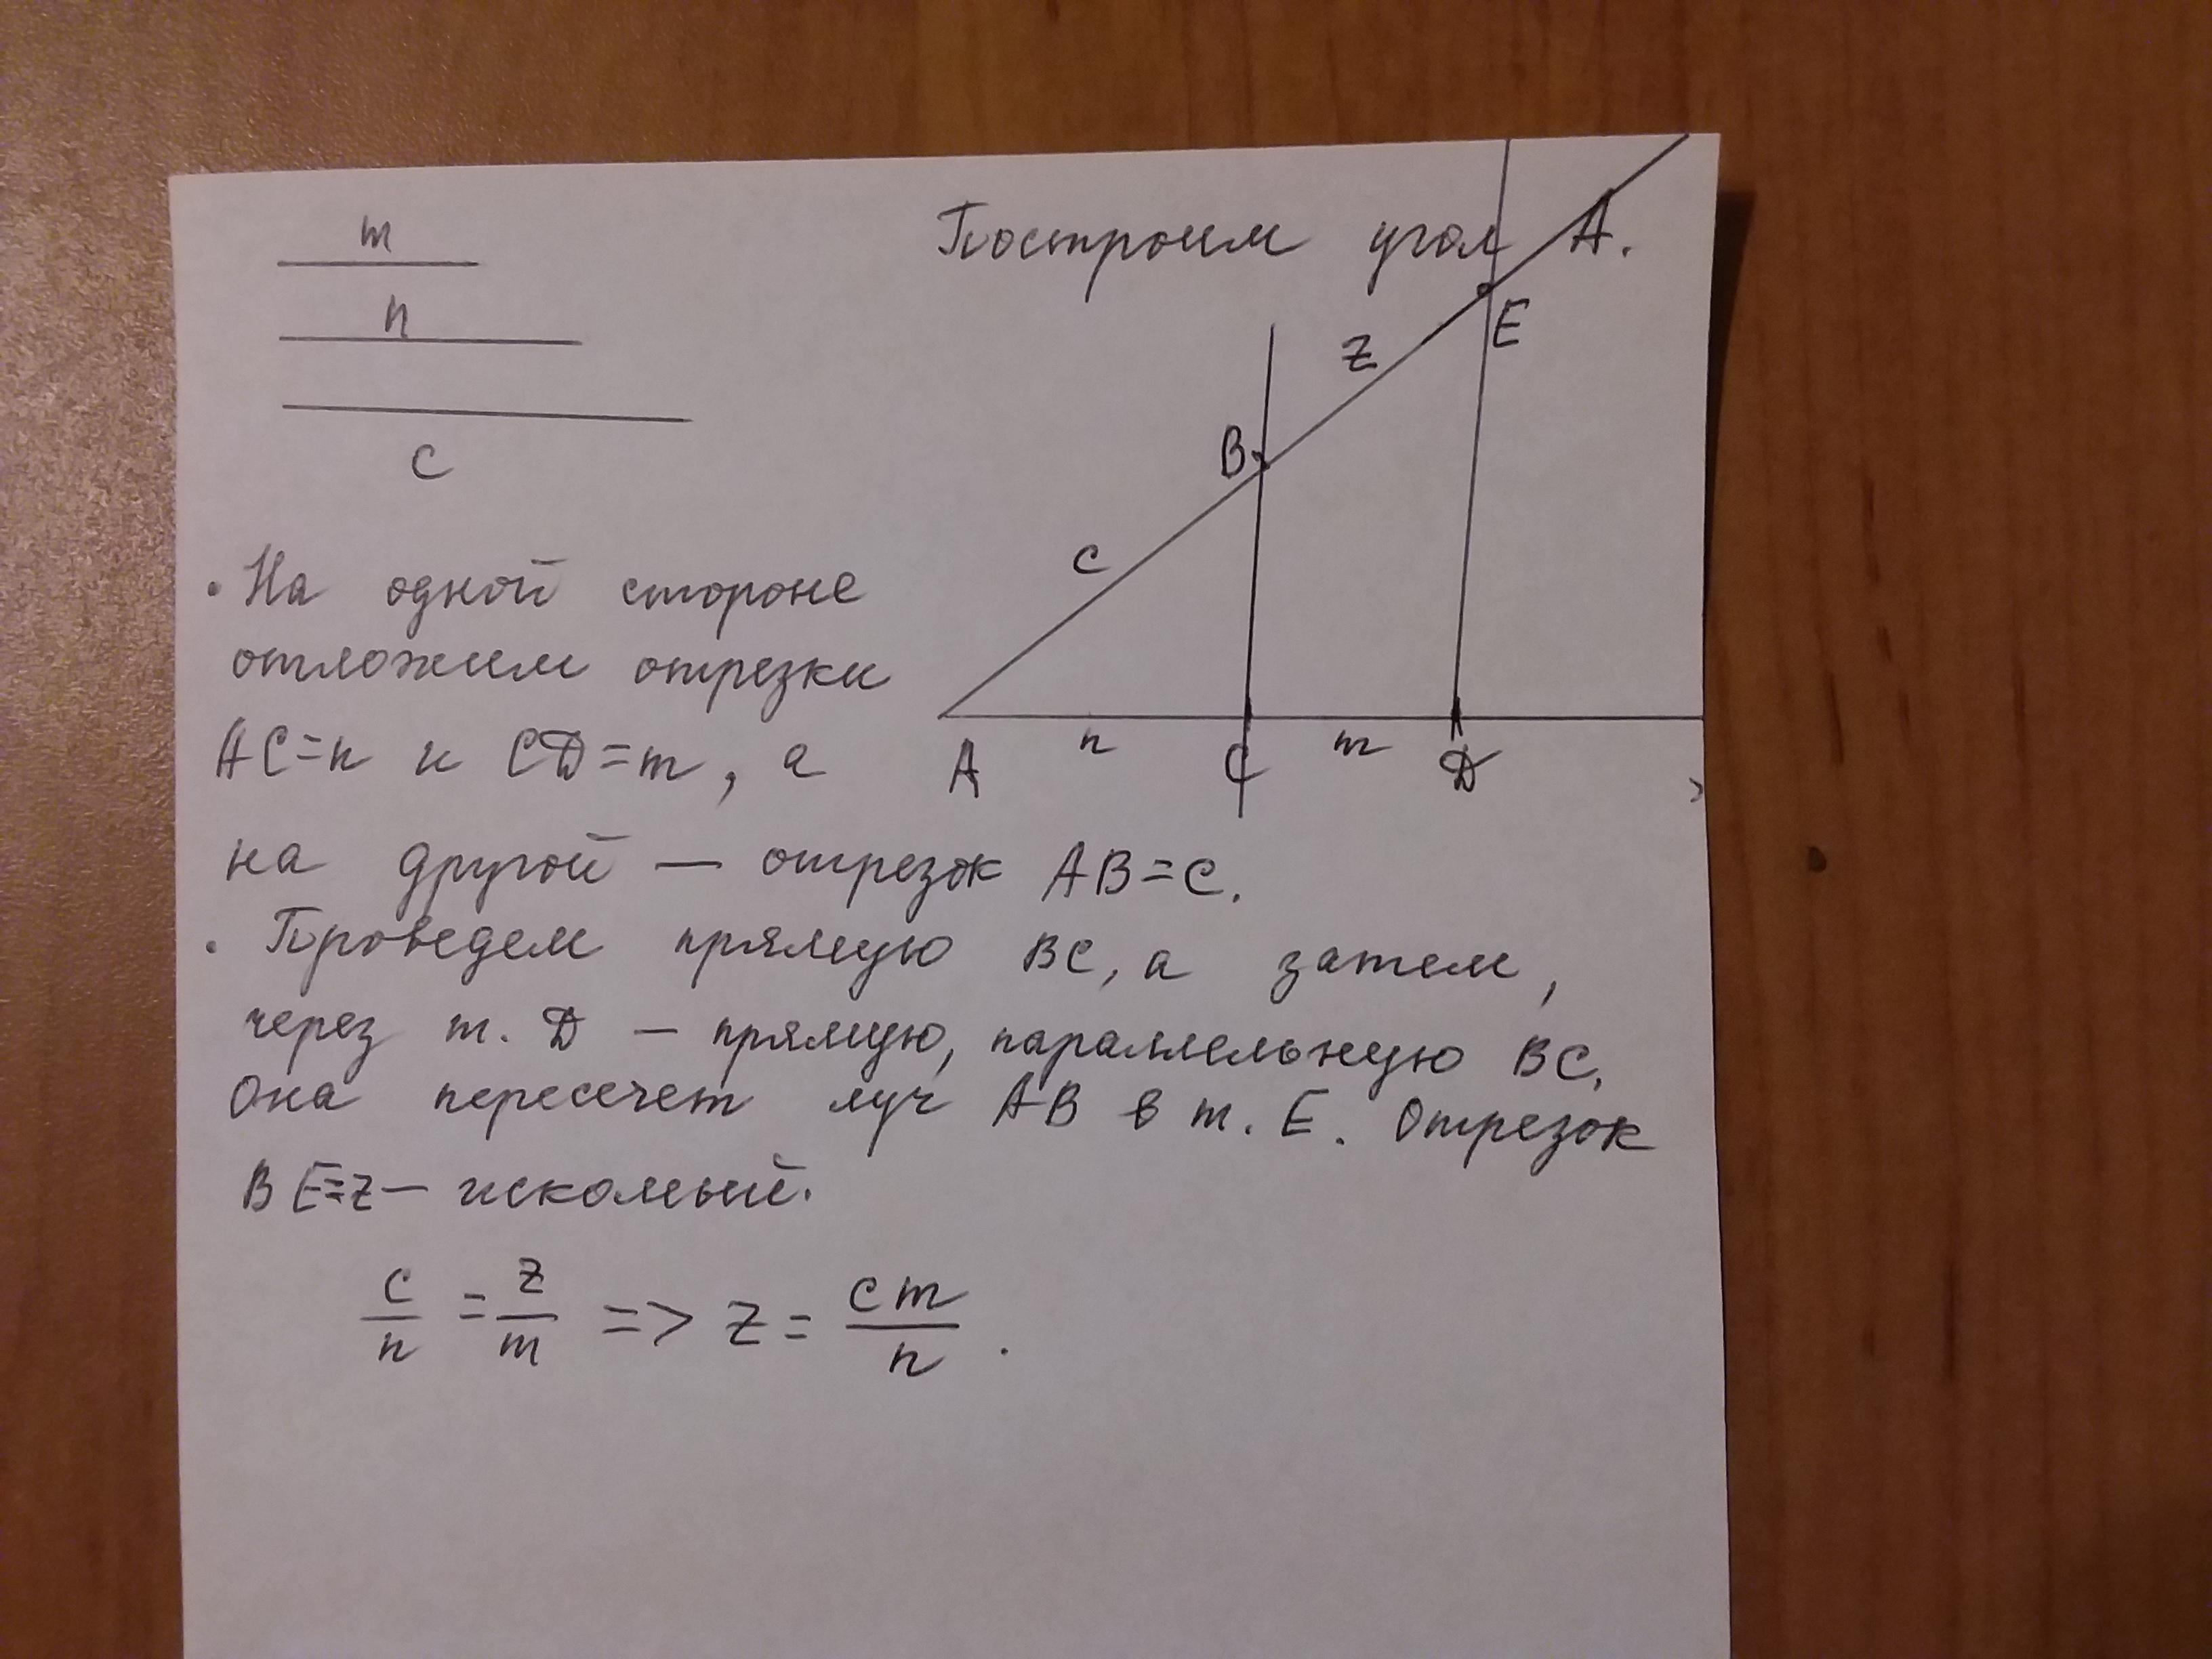 m
n
c
Построим угол A.
E
z
B
c
A n C m D
• На одной стороне
отложим отрезки
AC=n и CD=m, а
на другой — отрезок AB=c.
• Проведем прямую BC, а затем,
через т. D — прямую, параллельную BC.
Она пересечет луч AB в т. E. Отрезок
BE=z — искомый.
c/n = z/m => z = cm/n .